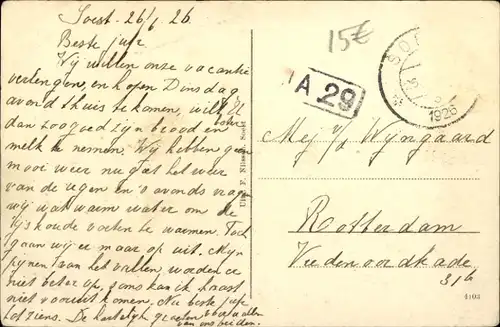 Soest. 26/6. 26
Beste juf,
Wij willen onze vacantie
verlengen, en hopen Dinsdag
avond thuis te komen, wilt U
dan zoo goed zijn brood en
melk te nemen. Wij hebben geen
mooi weer nu gat het weer
van de regen en 's avonds vragen
wij wat warm water om de
ijskoude voeten te warmen. Toch
gaan wij er maar op uit. Mijn
pijnen van het vallen, worden er
niet beter op, soms kan ik haast
niet vooruit komen. Nu beste juf
tot ziens. De hartelijke groeten
van ons beiden.
15€
SOEST
1926
A 29
Mej v/d Wijngaard
Rotterdam
31b
Uitg. F. Soest
4103